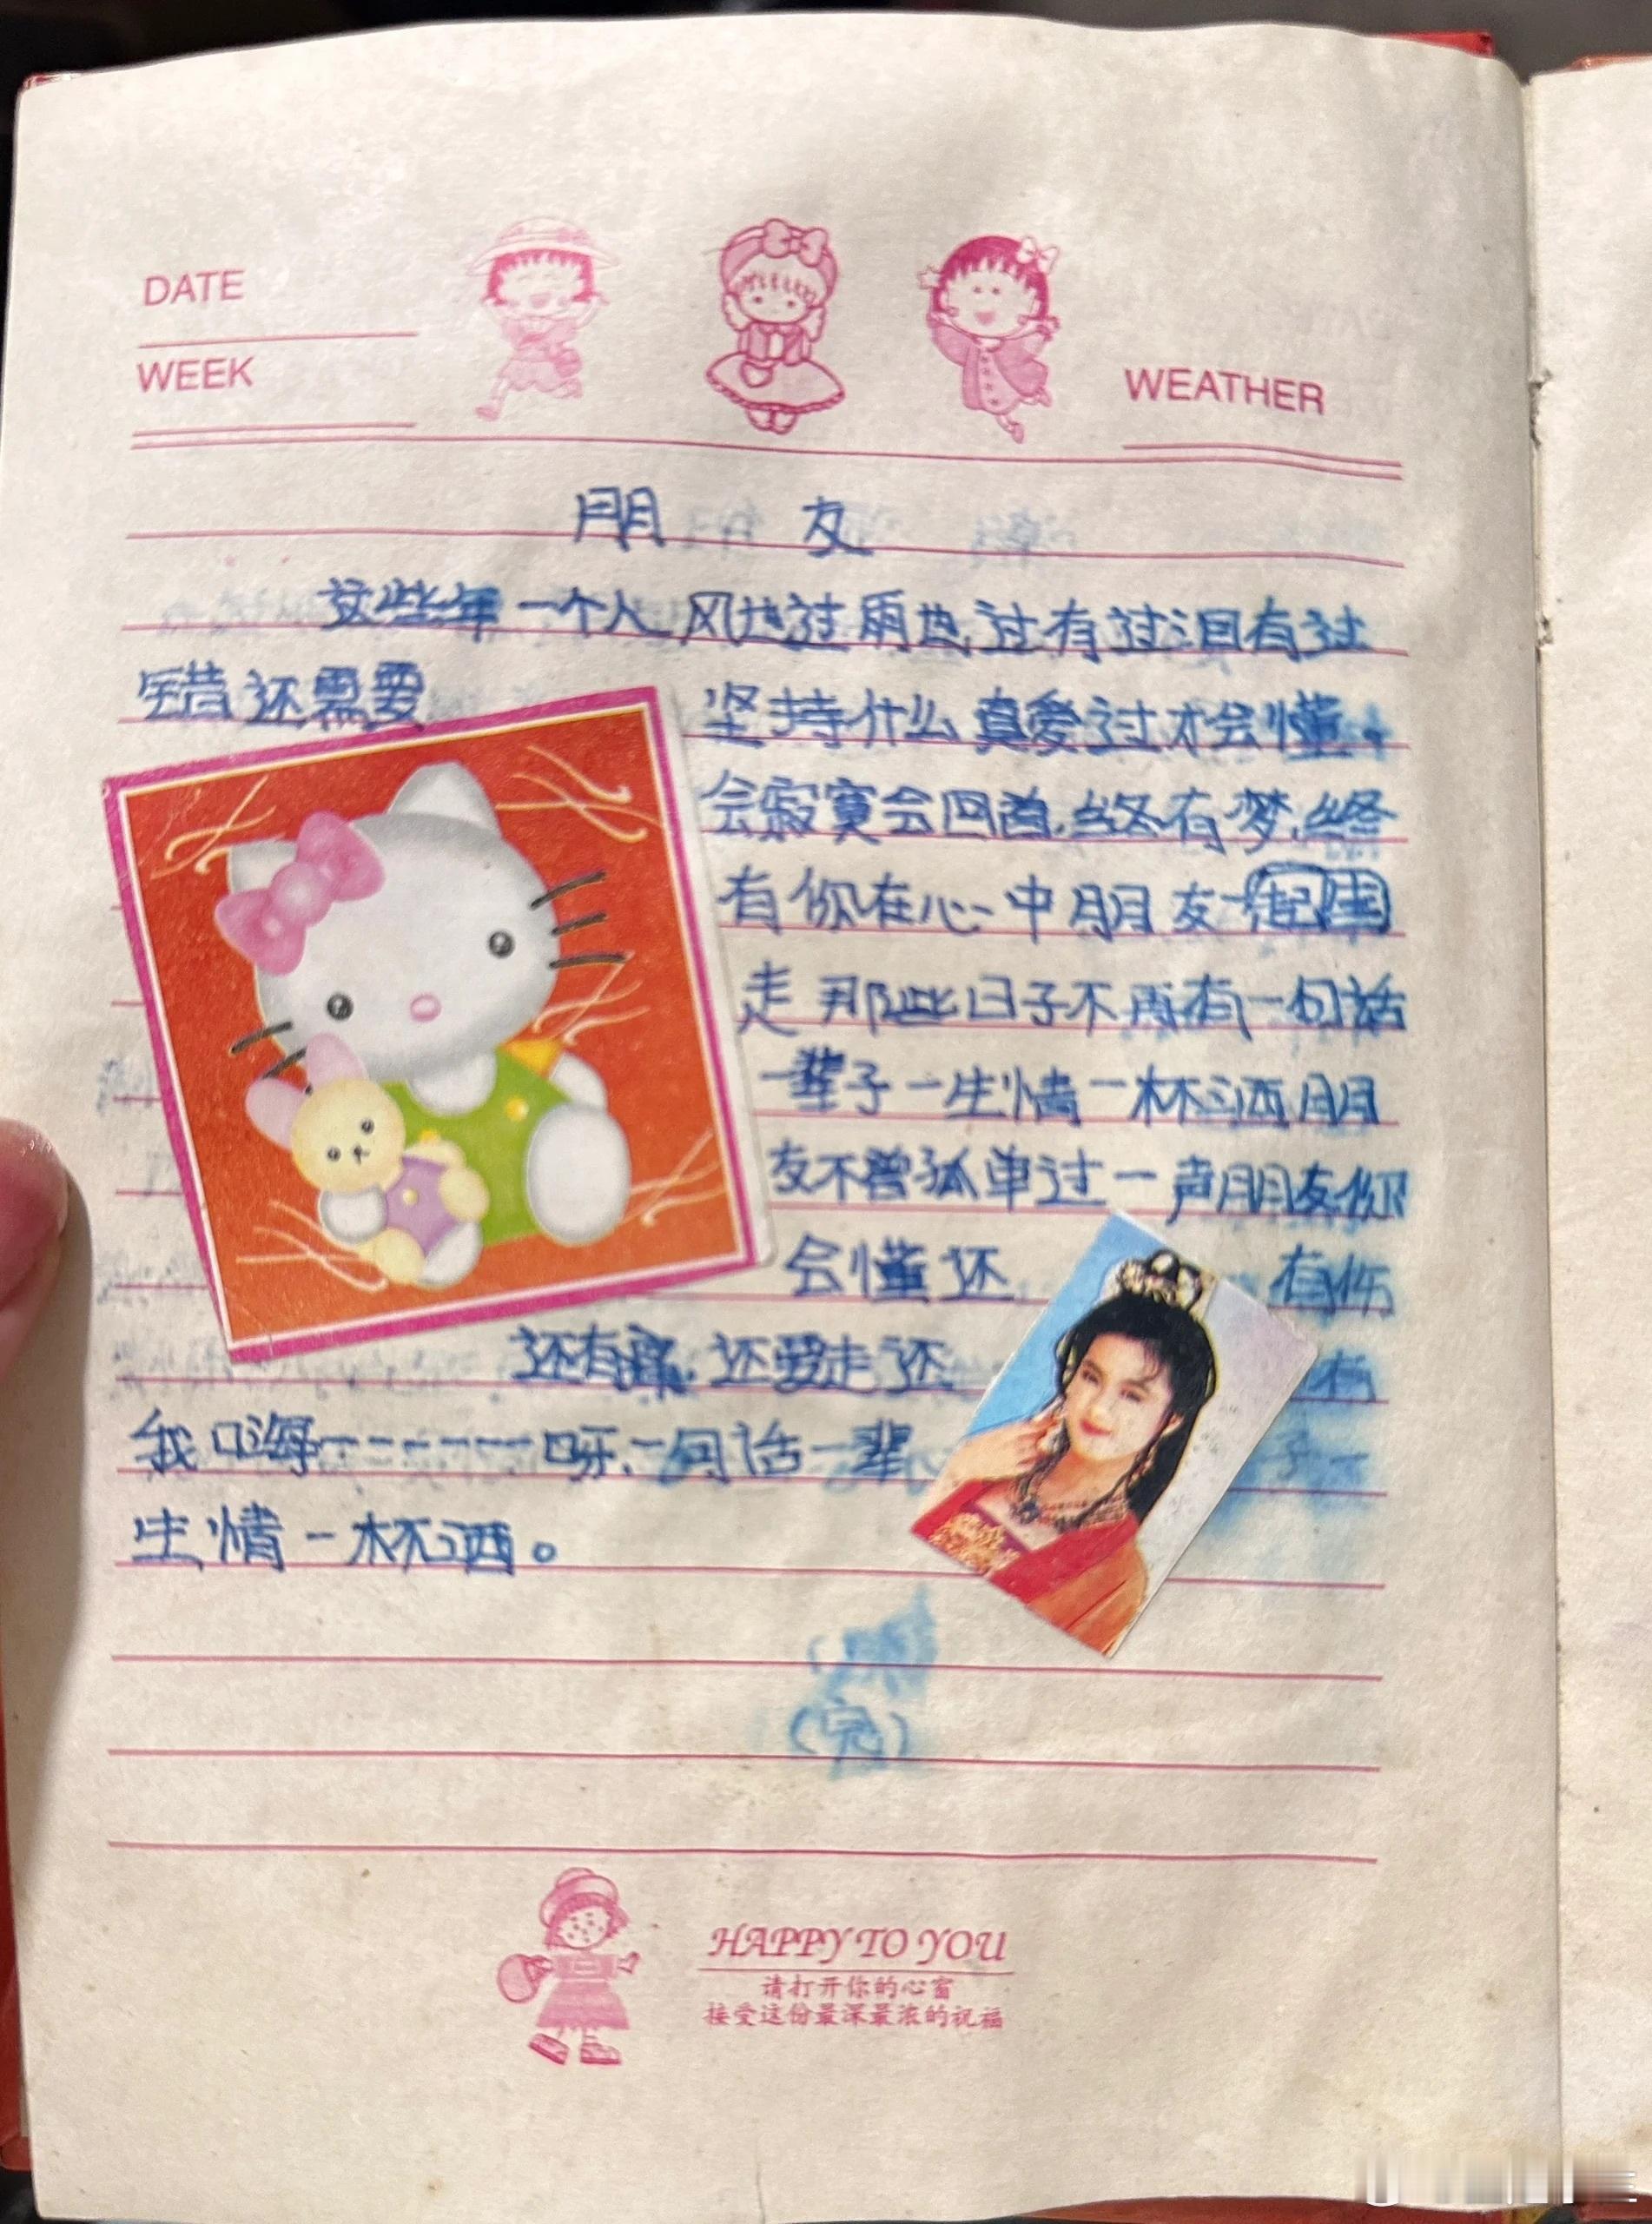 DATE
WEEK
WEATHER
朋 友
这些年一个人风也过雨也过有过泪有过
错还需要坚持什么真爱过才会懂。
会寂寞会回首,终有梦,终
有你在心中朋友一起
走那些日子不再有一句话
一辈子一生情一杯酒朋
友不曾孤单过一声朋友你
会懂还有伤
还有痛,还要走还有
我 嗨------呀,一句话一辈子一
生情一杯酒。
(完)
HAPPY TO YOU
请打开你的心窗
接受这份最深最浓的祝福